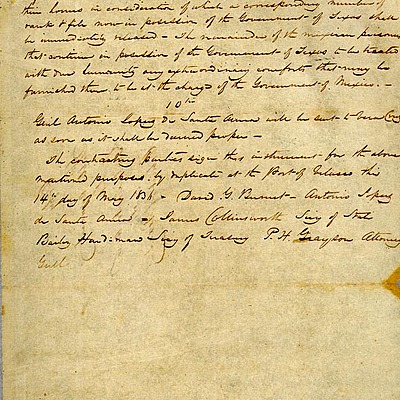 their homes in consideration of which a corresponding number of
rank & file now in possession of the Government of Texas shall
be immediately released — The remainder of the mexican prisoners
that continue in possession of the Government of Texas to be treated
with due humanity any extraordinary comforts that may be
furnished them to be at the charge of the Government of Mexico. —
10th
Genl Antonio Lopez de Santa Anna will be sent to Vera Cruz
as soon as it shall be deemed proper —
The contracting Parties sign this instrument for the above
mentioned purposes, by duplicate at the Port of Velasco this
14th day of May 1836 — David G. Burnet — Antonio Lopez
de Santa Anna — James Collinsworth Secy of State
Bailey Hardiman Secy of Treasury P. H. Grayson Attorney
Genl.